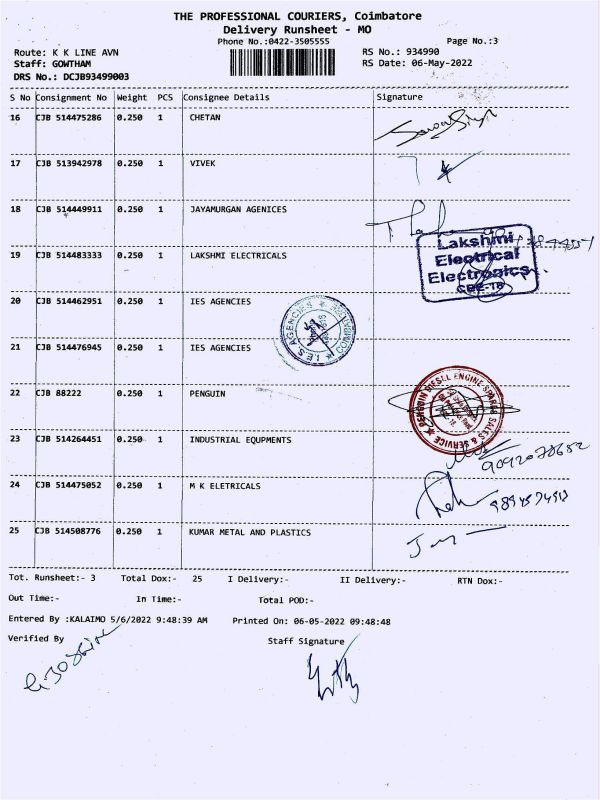 THE PROFESSIONAL COURIERS, Coimbatore
Delivery Runsheet - MO
Phone No.:0422-3505555
Page No.:3
Route: K K LINE AVN
RS No.: 934990
Staff: GOWTHAM
RS Date: 06-May-2022
DRS No.: DCJB93499003
S No Consignment No Weight PCS Consignee Details Signature
16 CJB 514475286 0.250 1 CHETAN
17 CJB 513942978 0.250 1 VIVEK
18 CJB 514449911 0.250 1 JAYAMURGAN AGENICES
19 CJB 514483333 0.250 1 LAKSHMI ELECTRICALS
Lakshmi
Electrical
Electronics
CBE-18
20 CJB 514462951 0.250 1 IES AGENCIES
I.E.S. AGENCIES ★ COIMBATORE ★
21 CJB 514476945 0.250 1 IES AGENCIES
22 CJB 88222 0.250 1 PENGUIN
PENGUIN DIESEL ENGINE SPARES SALES & SERVICE ★
23 CJB 514264451 0.250 1 INDUSTRIAL EQUPMENTS
9092078682
24 CJB 514475052 0.250 1 M K ELETRICALS
25 CJB 514508776 0.250 1 KUMAR METAL AND PLASTICS
Tot. Runsheet:- 3 Total Dox:- 25 I Delivery:- II Delivery:- RTN Dox:-
Out Time:- In Time:- Total POD:-
Entered By :KALAIMO 5/6/2022 9:48:39 AM Printed On: 06-05-2022 09:48:48
Verified By Staff Signature